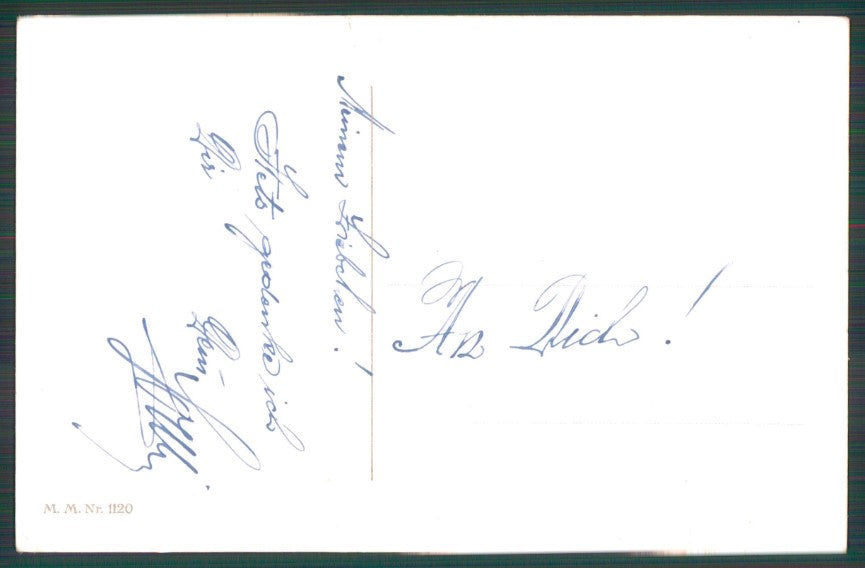 Meinem Liebchen!
Stets gedenke ich
Dir Dein
An Dich!
M. M. Nr. 1120